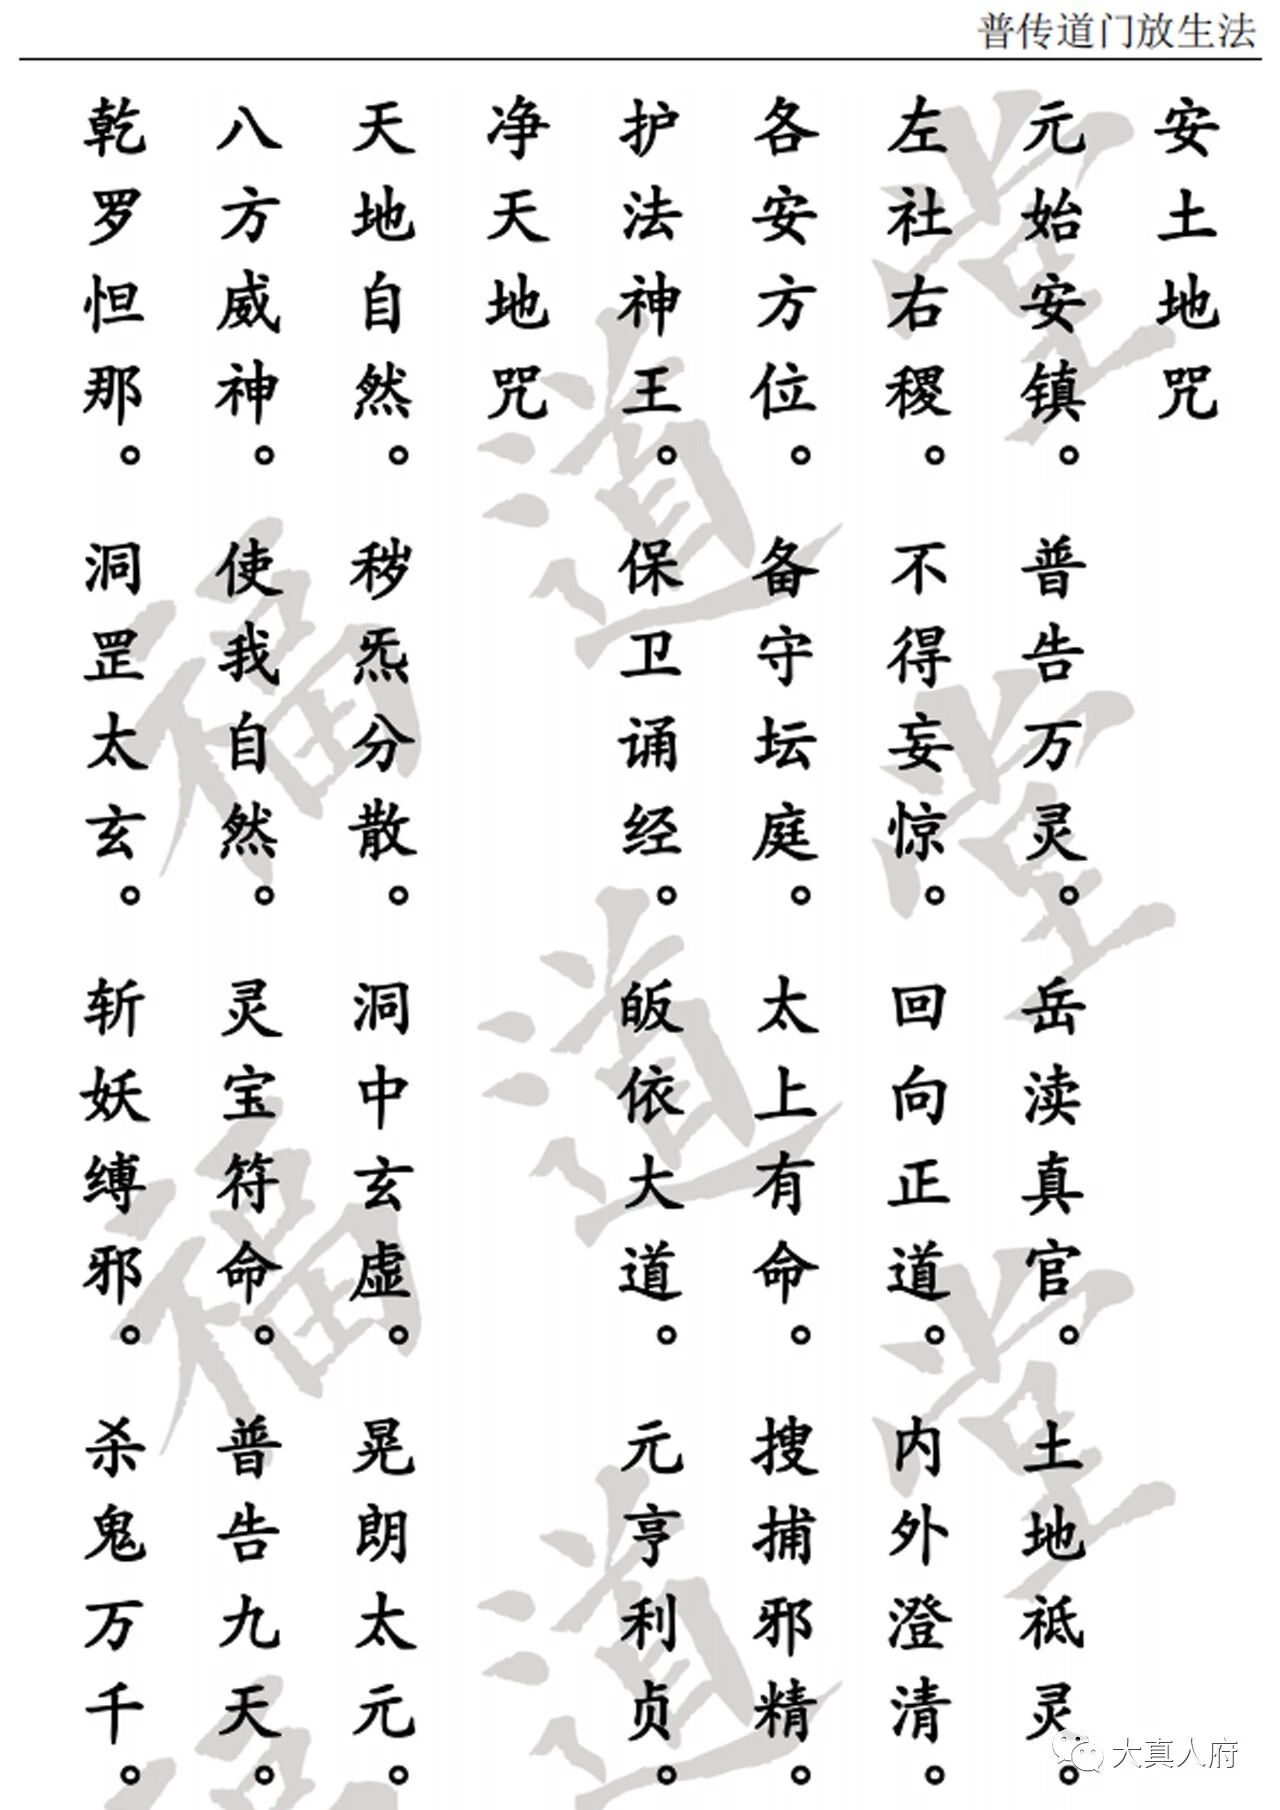 普传道门放生法
安土地咒
元始安镇。普告万灵。岳渎真官。土地祇灵。
左社右稷。不得妄惊。回向正道。内外澄清。
各安方位。备守坛庭。太上有命。搜捕邪精。
护法神王。保卫诵经。皈依大道。元亨利贞。
净天地咒
天地自然。秽炁分散。洞中玄虚。晃朗太元。
八方威神。使我自然。灵宝符命。普告九天。
乾罗怛那。洞罡太玄。斩妖缚邪。杀鬼万千。
福道堂
大真人府